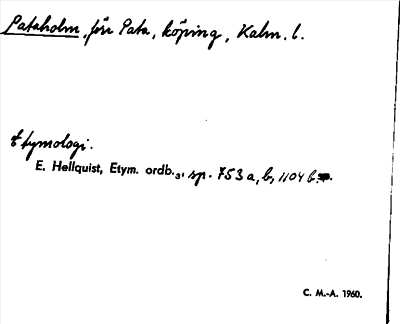 Pataholm, förr Pata, köping, Kalm. l.
Etymologi.
E. Hellquist, Etym. ordb.3, sp. 753 a, b, 1104 b.
C. M.-A. 1960.